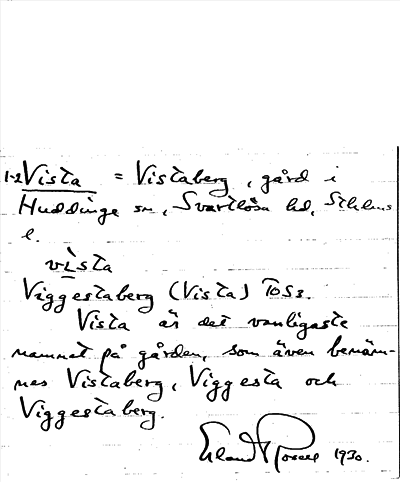 1-2 Vista = Vistaberg, gård i
Huddinge sn, Svartlösa hd, Sthlms
l.
vista
Viggestaberg (Vista) TOS3.
Vista är det vanligaste
namnet på gården, som även benäm-
nes Vistaberg, Viggesta och
Viggestaberg.
1930.